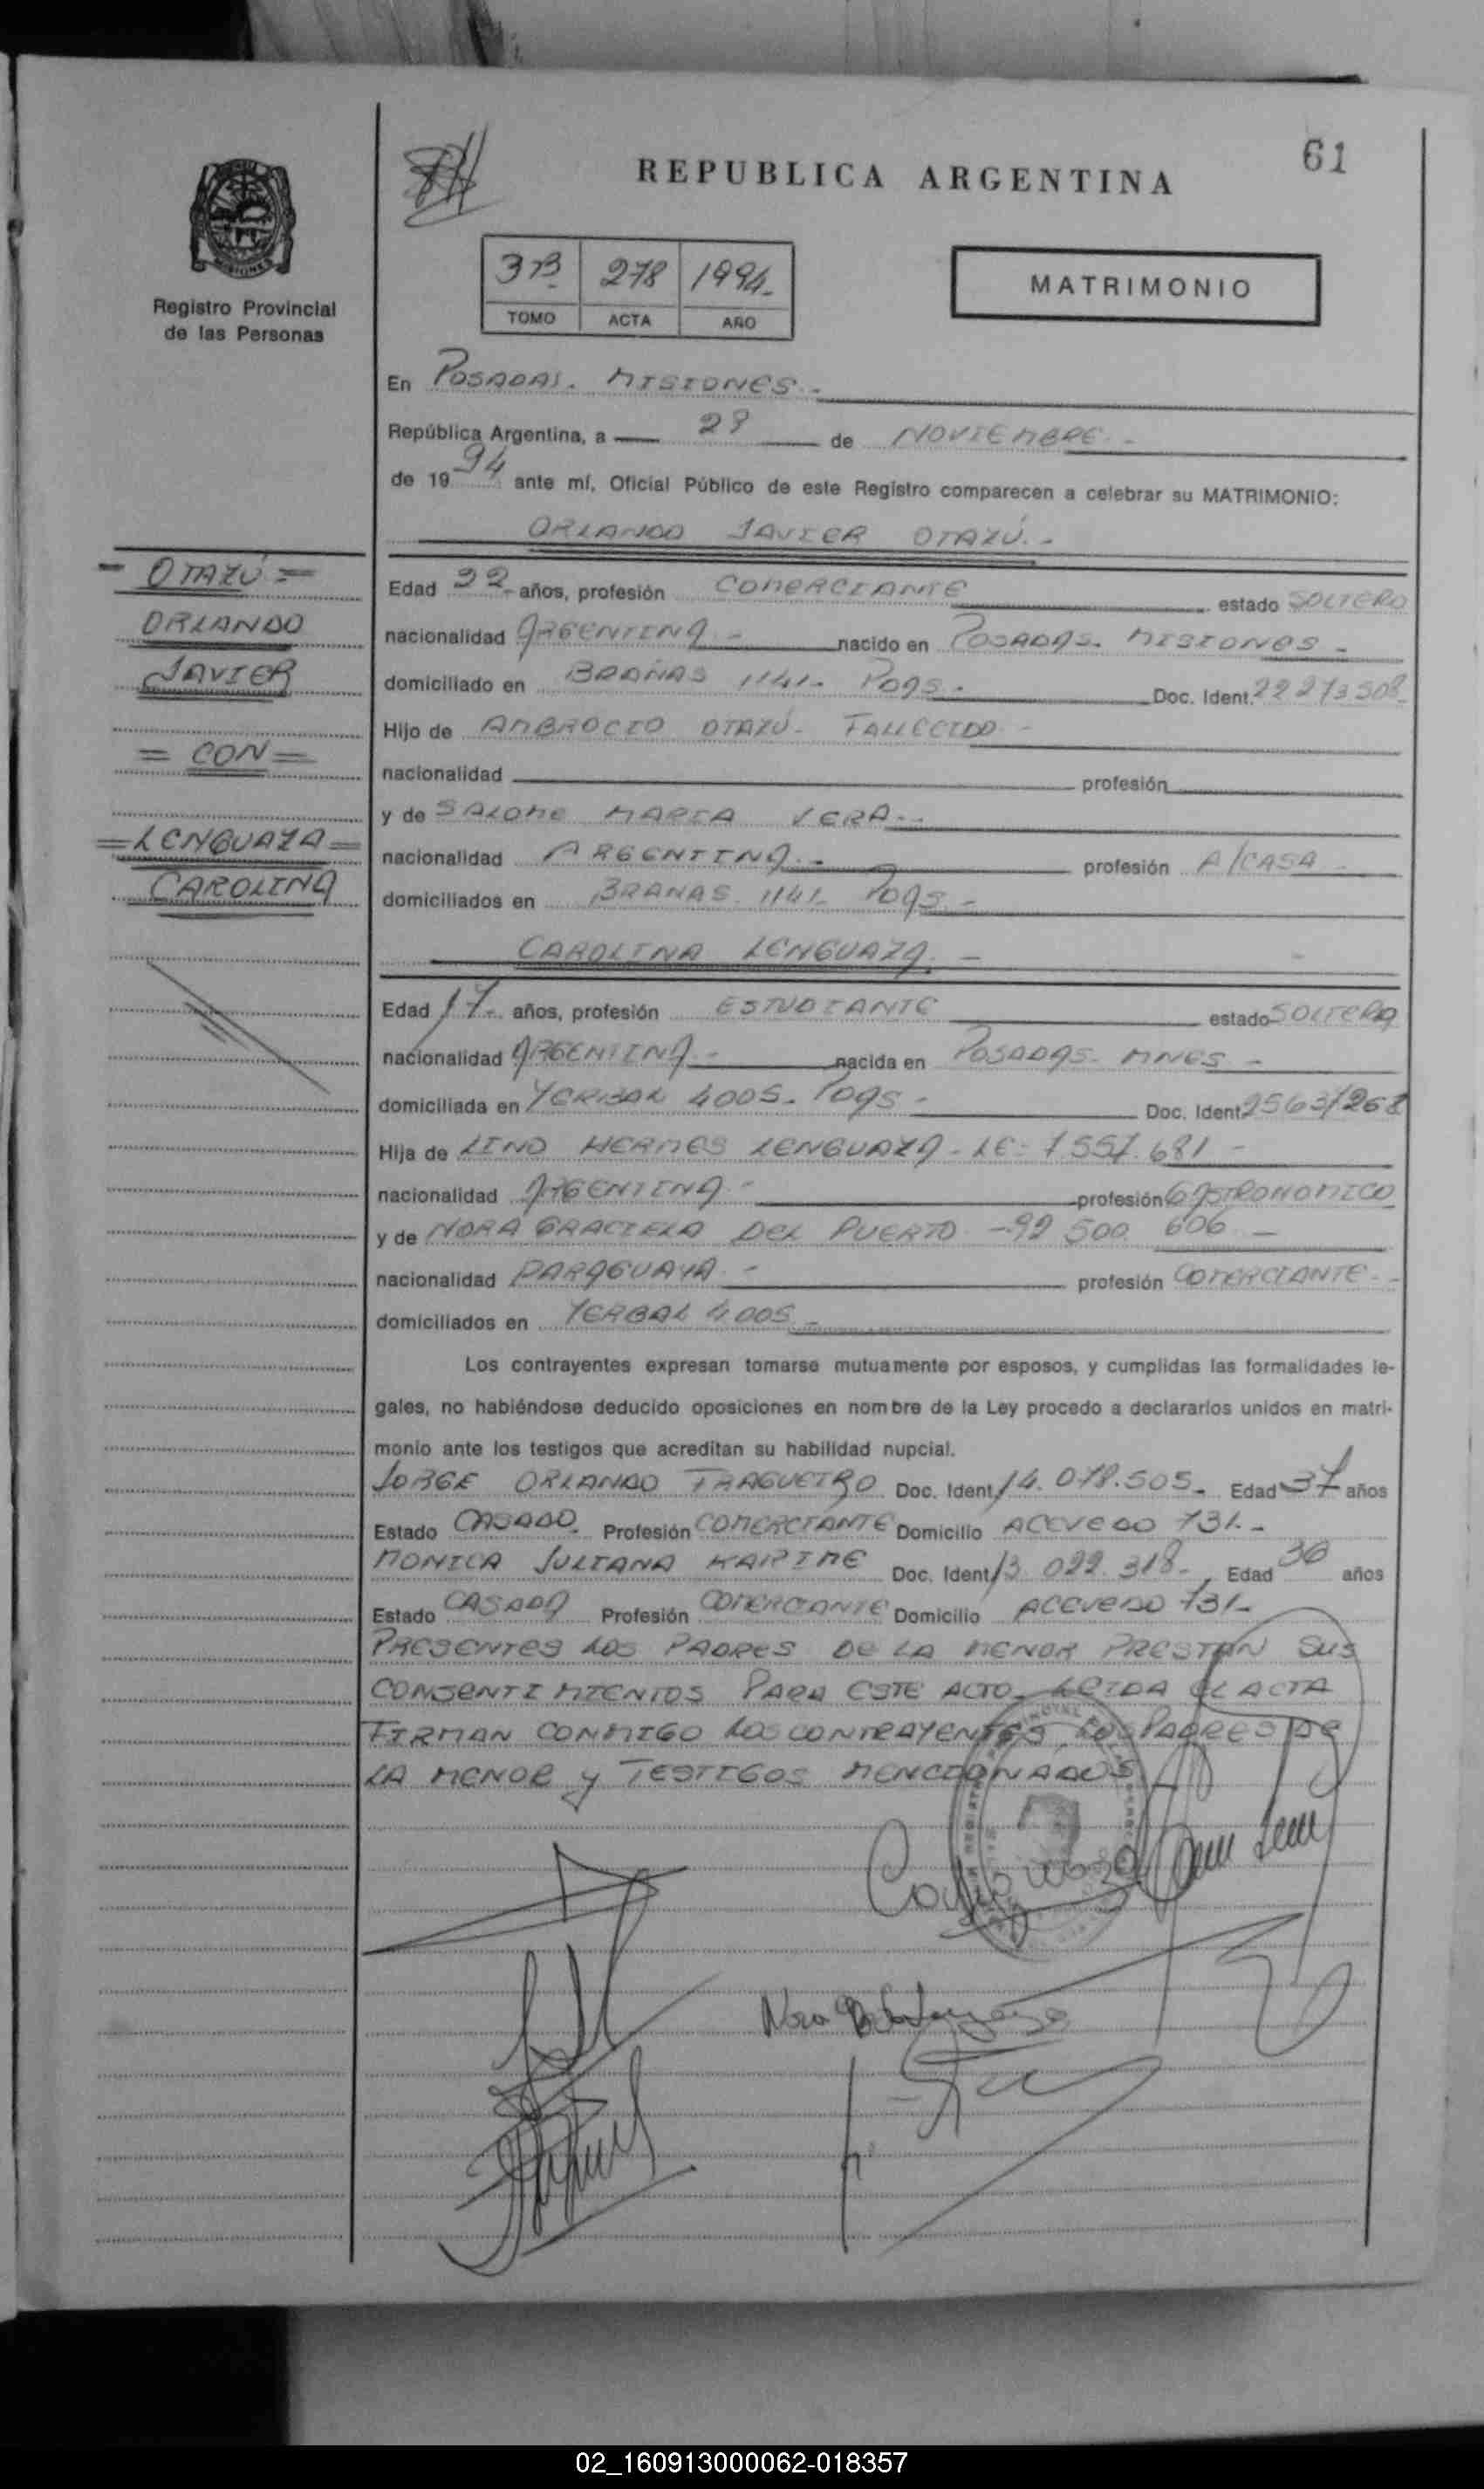 61
REPUBLICA ARGENTINA
MISIONES
Registro Provincial
de las Personas
3B 278 1994.-
TOMO ACTA AÑO
MATRIMONIO
En POSADAS. MISIONES.-
República Argentina, a 28 de NOVIEMBRE.-
de 1994 ante mí, Oficial Público de este Registro comparecen a celebrar su MATRIMONIO:
ORLANDO JAVIER OTAZÚ.-
= OTAZÚ =
ORLANDO
JAVIER
= CON =
= LENGUAZA =
CAROLINA
Edad 22- años, profesión COMERCIANTE estado SOLTERO
nacionalidad ARGENTINA - nacido en POSADAS. MISIONES -
domiciliado en BRAÑAS 1141- Pdas.- Doc. Ident. 22.273.508-
Hijo de AMBROCIO OTAZÚ- FALLECIDO -
nacionalidad profesión
y de SALOME MARIA VERA.-
nacionalidad ARGENTINA.- profesión A/CASA -
domiciliados en BRAÑAS 1141- Pdas.-
CAROLINA LENGUAZA.-
Edad 17- años, profesión ESTUDIANTE estado SOLTERA
nacionalidad ARGENTINA.- nacida en POSADAS- MNES -
domiciliada en YERBAL 4005- Pdas - Doc. Ident.
Hija de LINO HERMES LENGUAZA - LE- 7.557.681 -
nacionalidad ARGENTINA - profesión GASTRONOMICO
y de NORA GRACIELA DEL PUERTO - 92 500 606 -
nacionalidad PARAGUAYA - profesión COMERCIANTE.-
domiciliados en YERBAL 4005 -
Los contrayentes expresan tomarse mutuamente por esposos, y cumplidas las formalidades le-
gales, no habiéndose deducido oposiciones en nombre de la Ley procedo a declararlos unidos en matri-
monio ante los testigos que acreditan su habilidad nupcial.
JORGE ORLANDO Doc. Ident. 14.078.505- Edad 37 años
Estado CASADO. Profesión COMERCIANTE Domicilio ACEVEDO 731.-
MONICA JULIANA Doc. Ident. 13.022.318- Edad 36 años
Estado CASADA Profesión COMERCIANTE Domicilio ACEVEDO 731-
PRESENTES LOS PADRES DE LA MENOR PRESTAN SUS
CONSENTIMIENTOS PARA ESTE ACTO. LEIDA EL ACTA
FIRMAN CONMIGO LOS CONTRAYENTES, LOS PADRES DE
LA MENOR y TESTIGOS MENCIONADOS
02_160913000062-018357